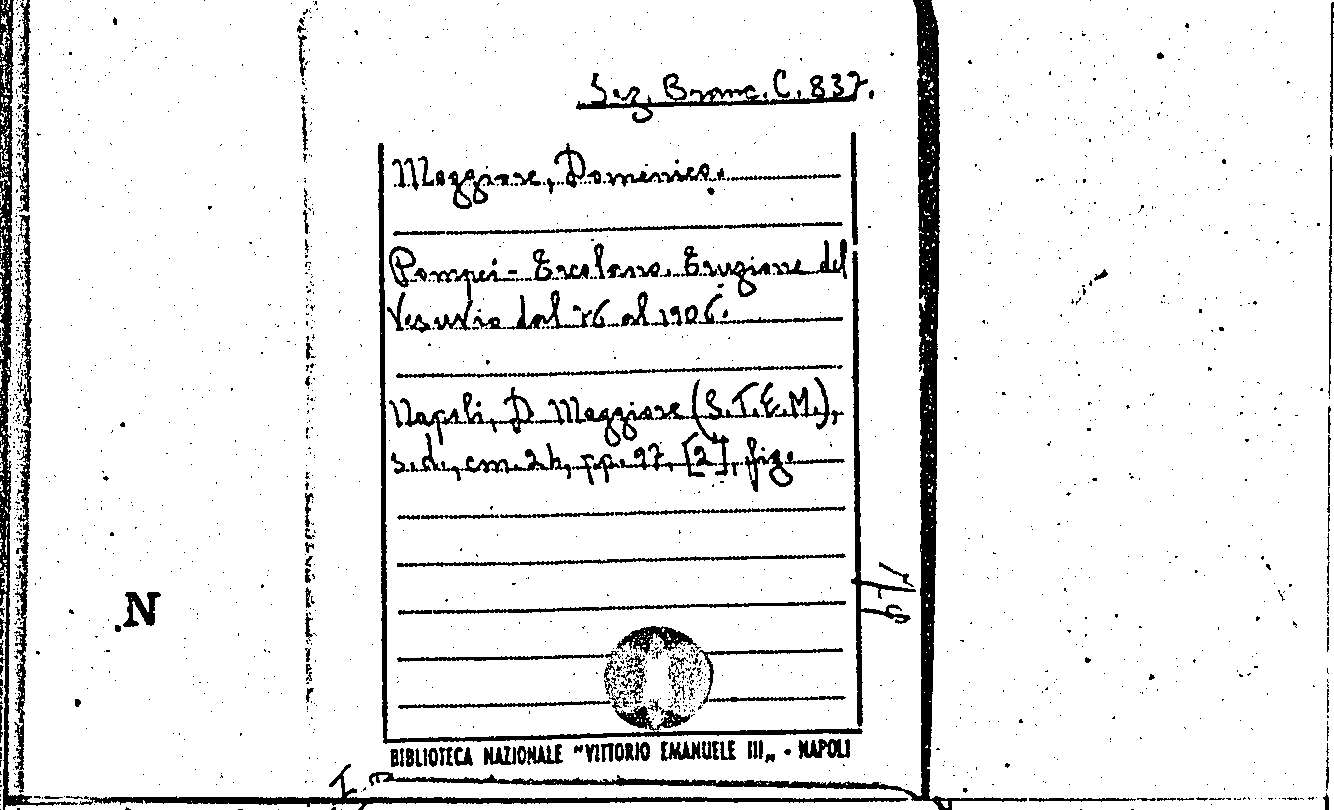 Sez. Branc. C. 837.
Maggiore, Domenico.
Pompei - Ercolano. Eruzione del
Vesuvio dal 76 al 1906.
Napoli, D. Maggiore (S.T.E.M.),
s.d., cm. 24, pp. 97, [2], fig.
N
BIBLIOTECA NAZIONALE "VITTORIO EMANUELE III„ - NAPOLI